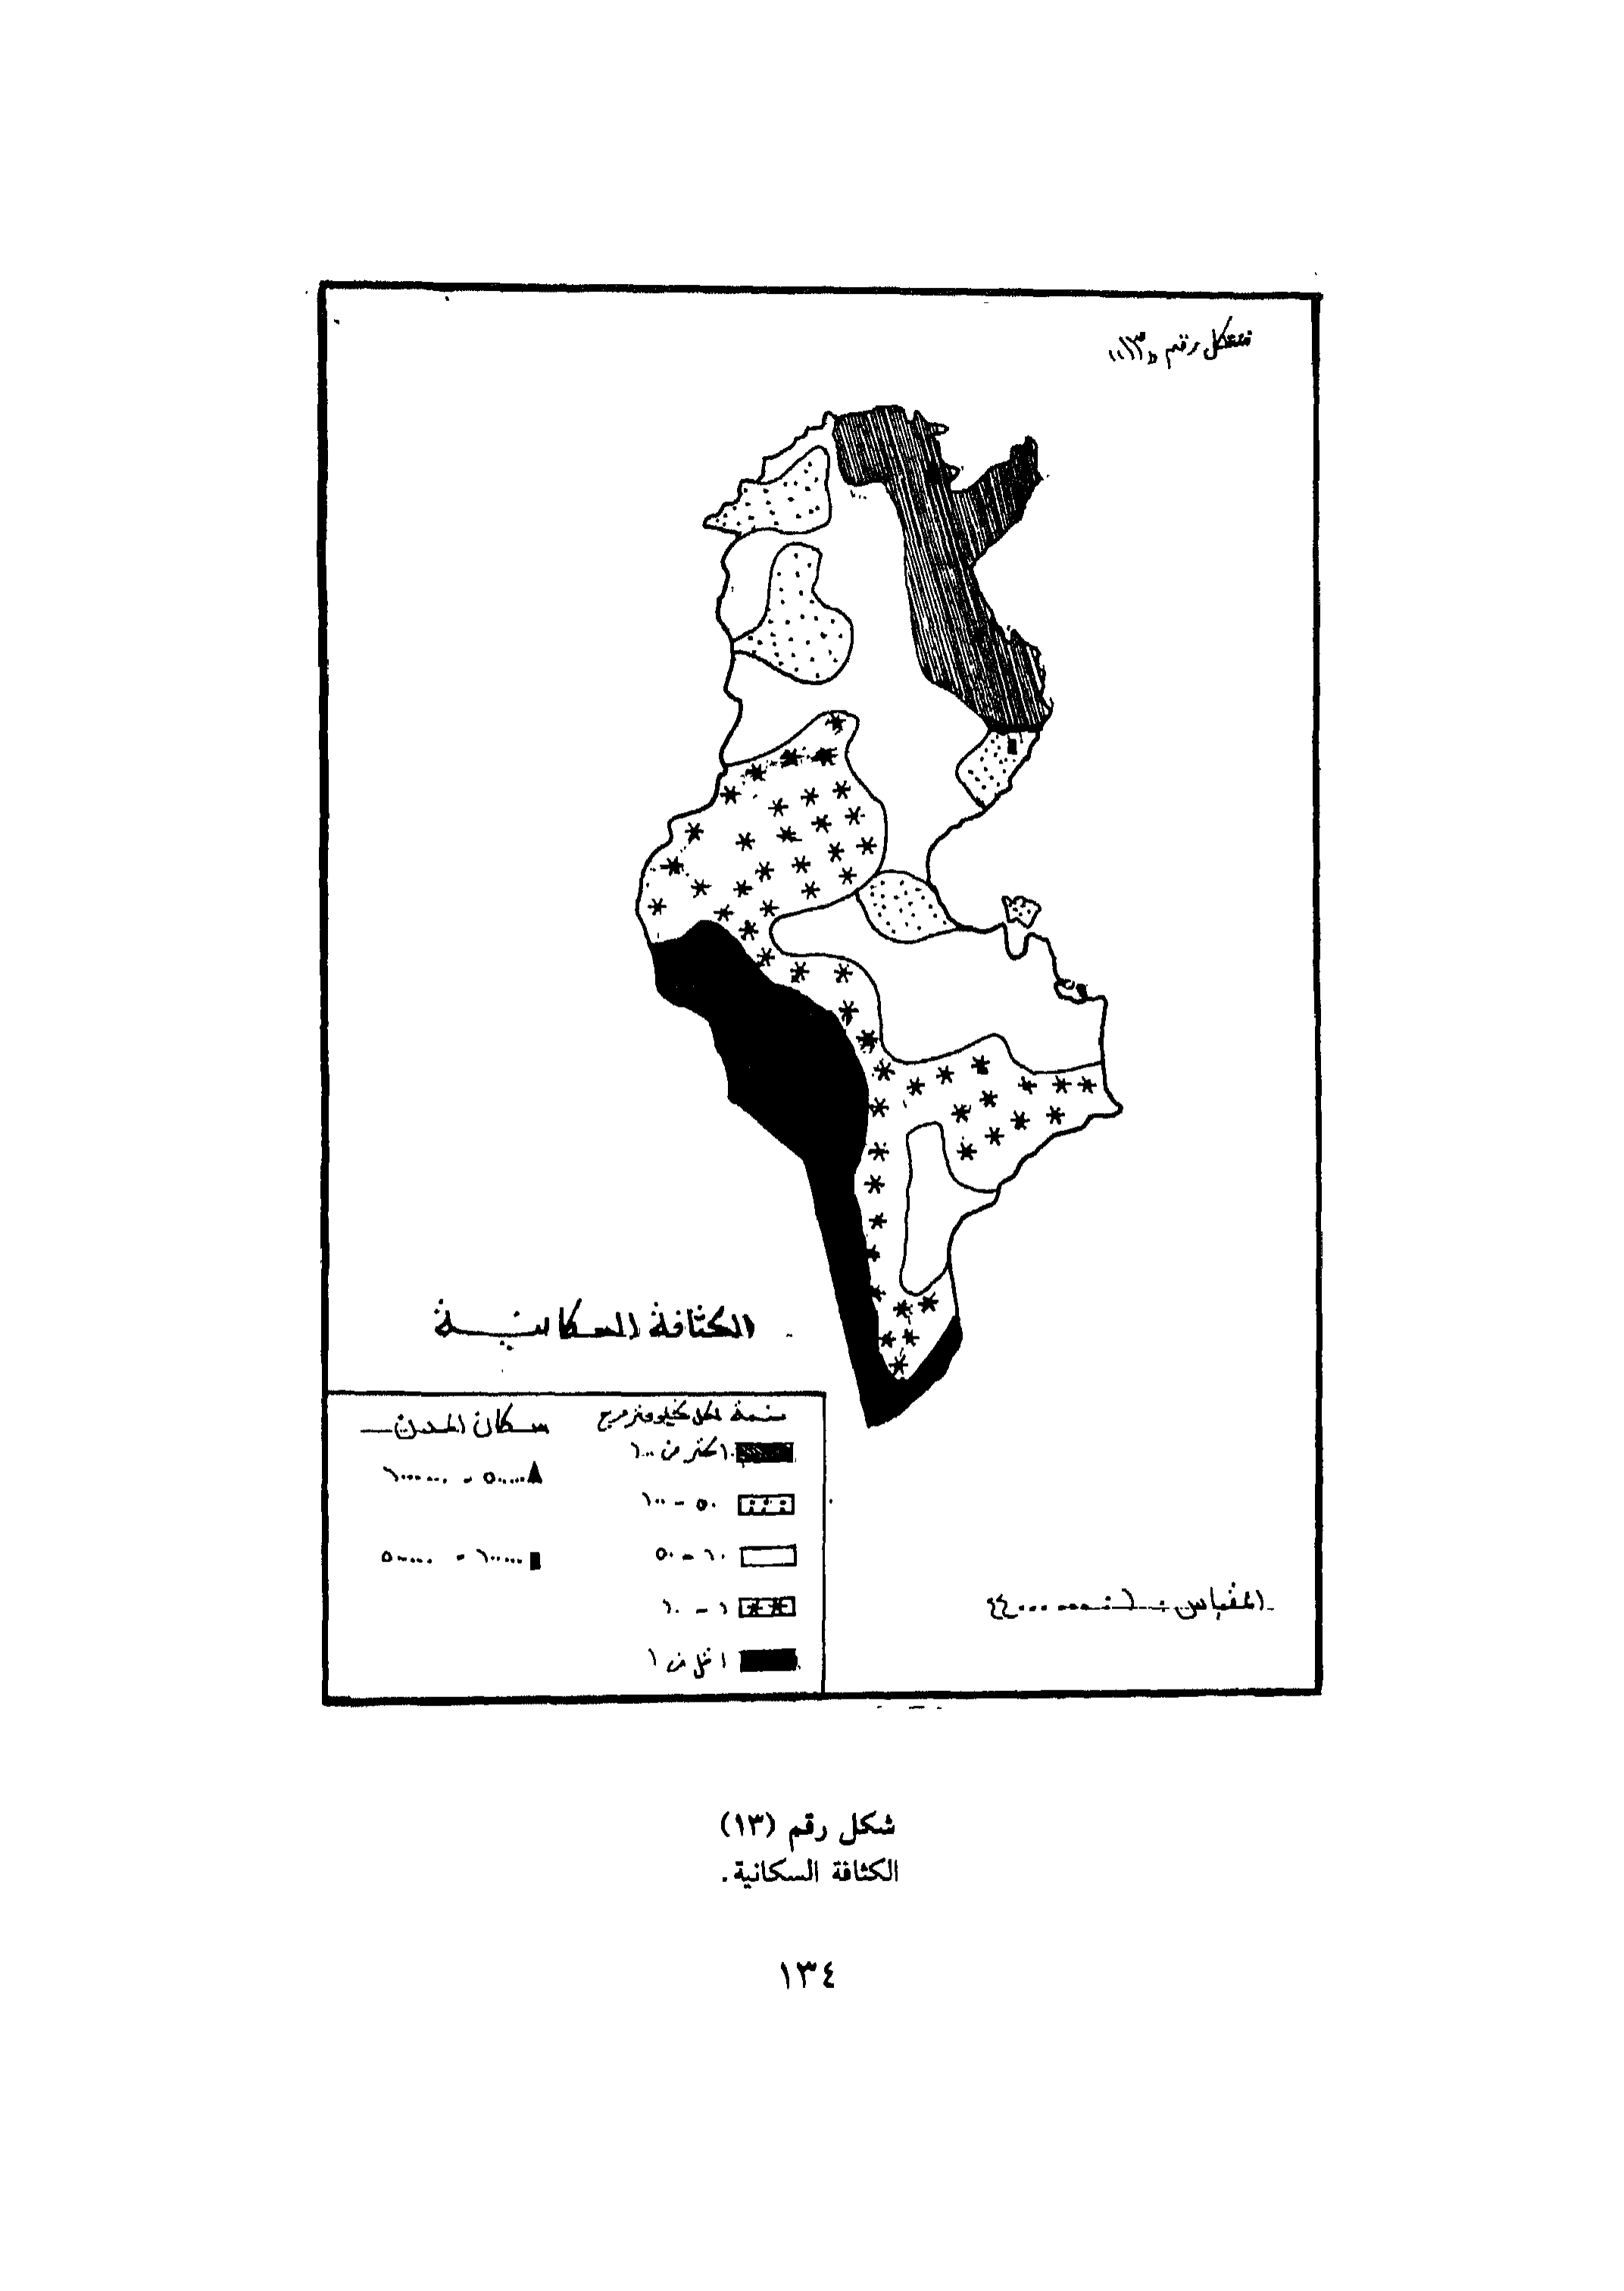 شكل رقم «١٣»
الكثافة السكانية
نسمة لكل كيلومتر مربع
اكثر من ١٠٠
٥٠ - ١٠٠
١٠ - ٥٠
١ - ١٠
اقل من ١
سكان المدن
٥٠٠٠٠٠ - ١٠٠٠٠٠٠
١٠٠٠٠٠ - ٥٠٠٠٠٠
المقياس :
شكل رقم (١٣)
الكثافة السكانية.
١٣٤